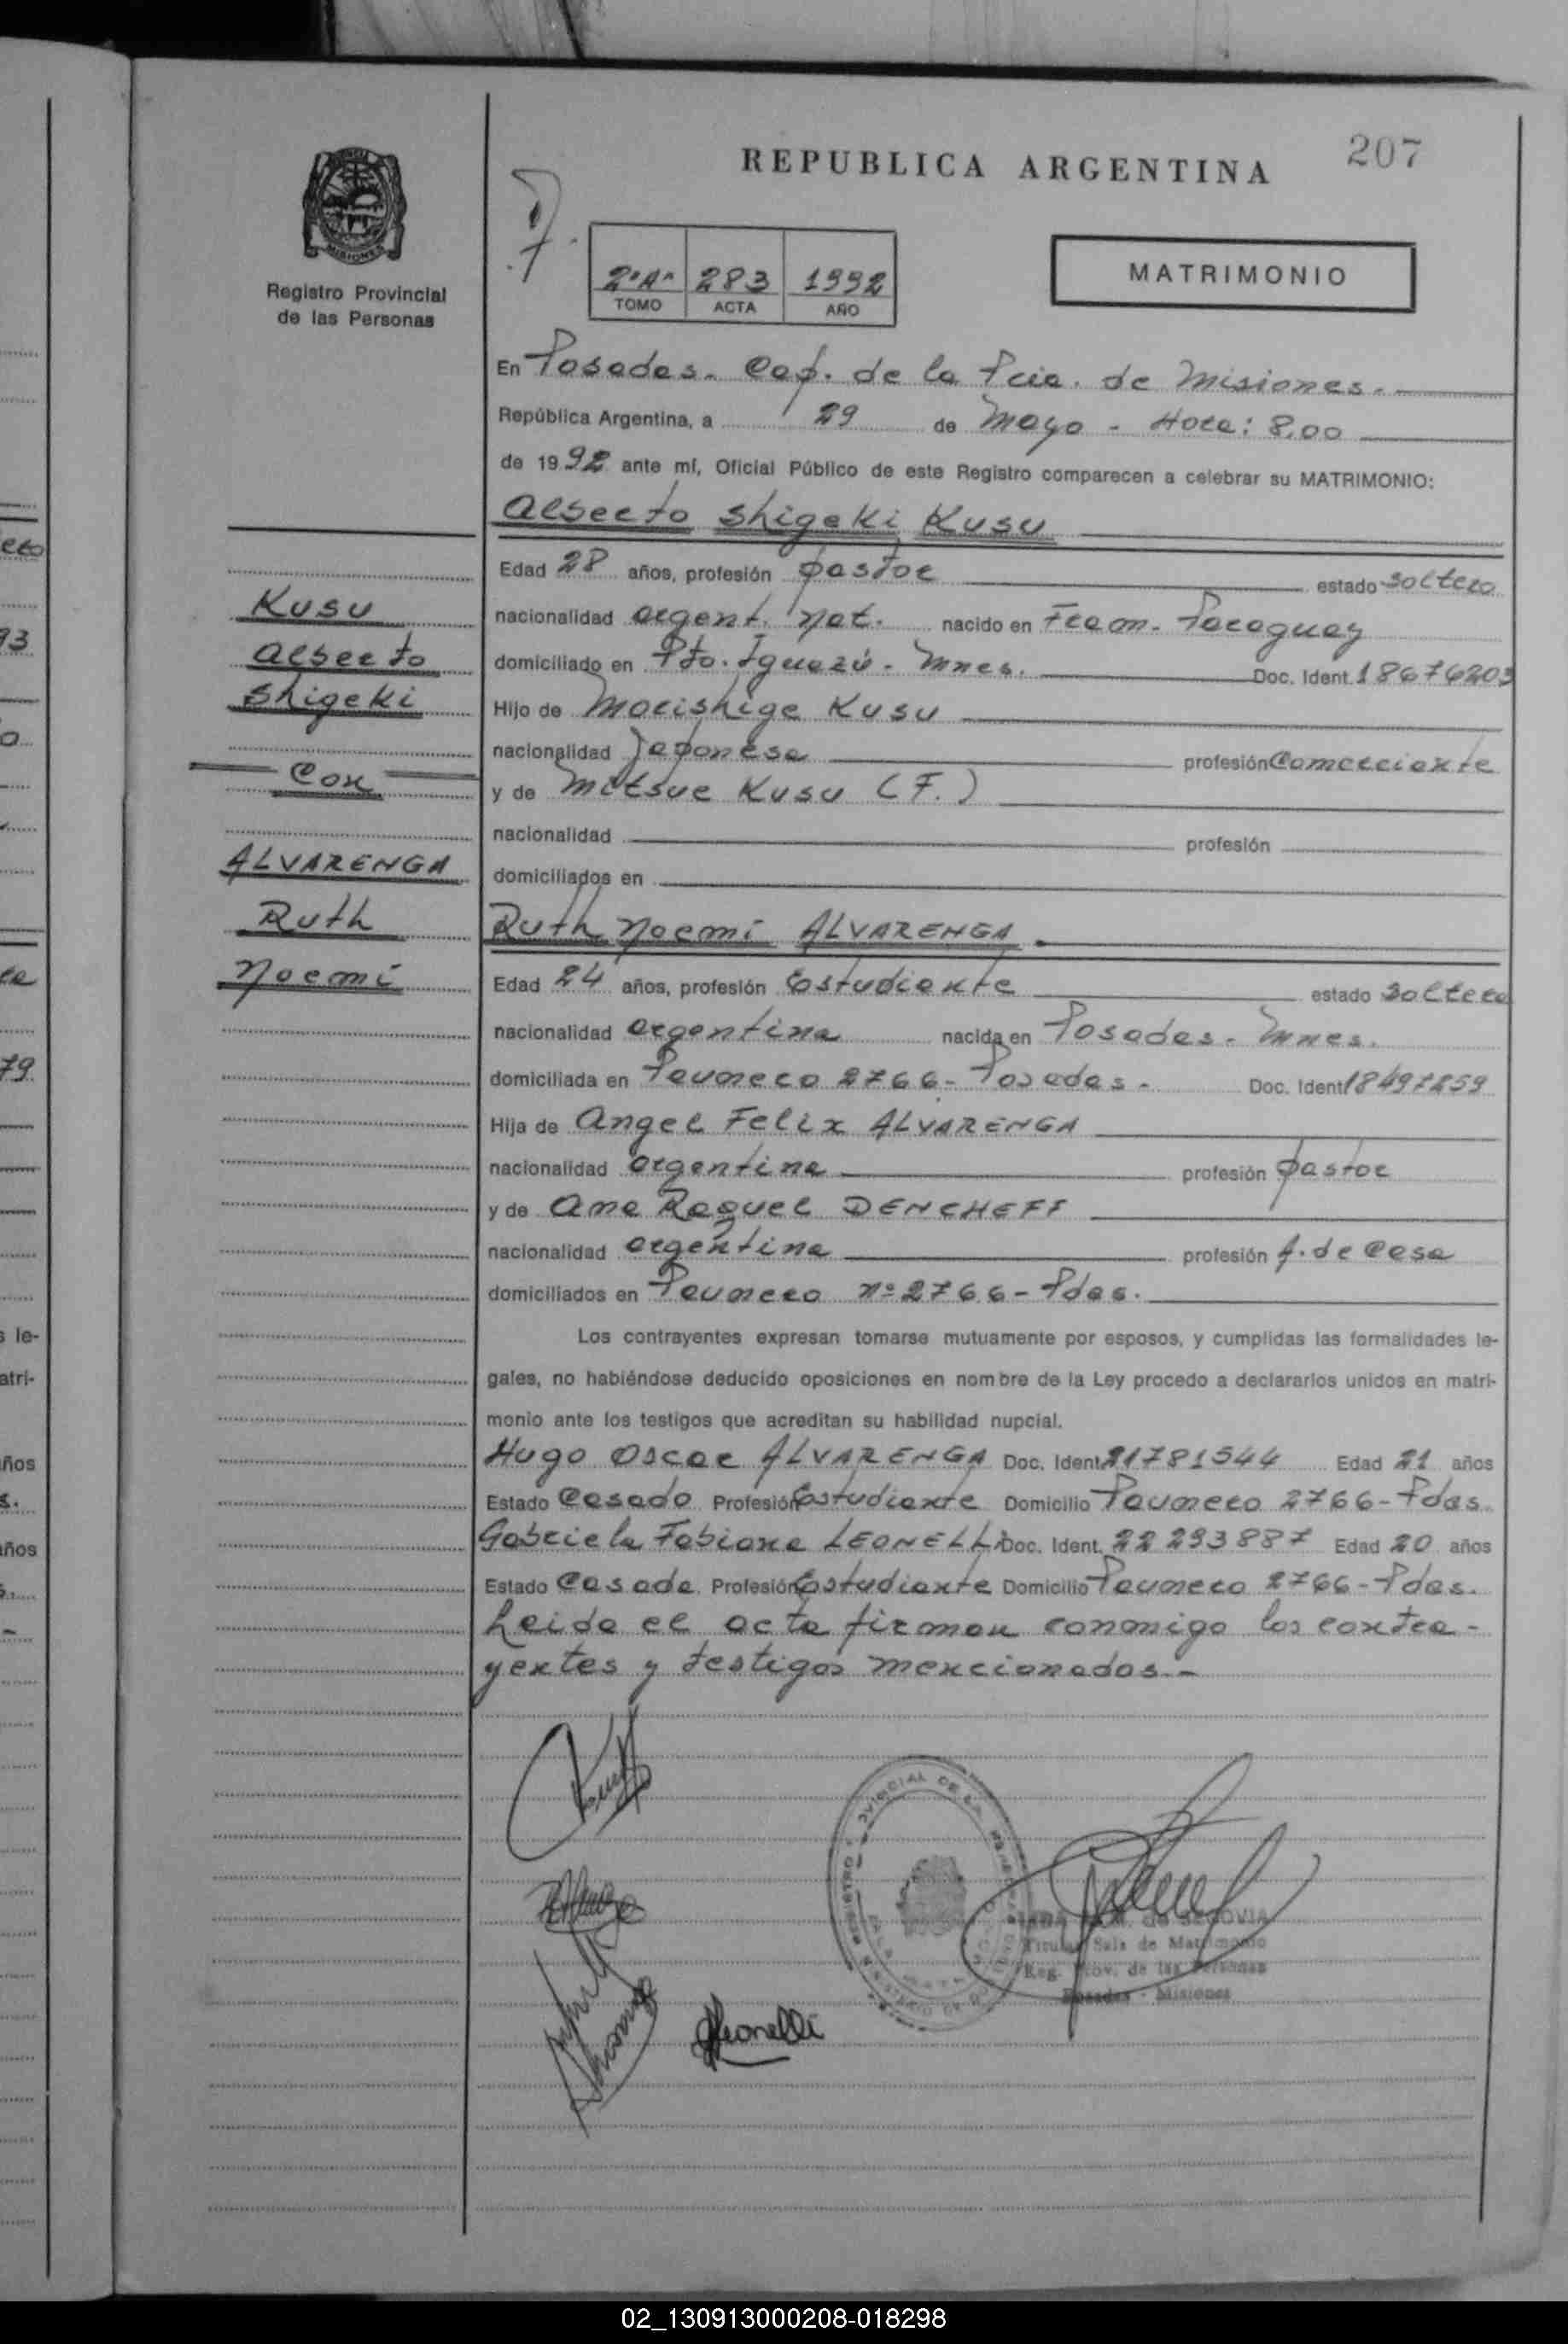 207
REPUBLICA ARGENTINA
MISIONES
Registro Provincial
de las Personas
2º"A" 283 1992
TOMO ACTA AÑO
MATRIMONIO
En Posadas. Cap. de la Pcia. de Misiones.
República Argentina, a 29 de Mayo - Hora: 8,00
de 1992 ante mí, Oficial Público de este Registro comparecen a celebrar su MATRIMONIO:
Alberto Shigeki Kusu
Edad 28 años, profesión pastor estado soltero
nacionalidad argent. nat. nacido en Fram. Paraguay
domiciliado en Pto. Iguazú - Mnes. Doc. Ident. 18676203
Hijo de Morishige Kusu
nacionalidad Japonesa profesión Comerciante
y de Mitsue Kusu (F.)
nacionalidad profesión
domiciliados en
Ruth Noemí ALVARENGA
Edad 24 años, profesión Estudiante estado soltera
nacionalidad argentina nacida en Posadas - Mnes.
domiciliada en Paunero 2766 - Posadas - Doc. Ident 18497859
Hija de Angel Felix ALVARENGA
nacionalidad argentina profesión pastor
y de Ana Raquel DENCHEFF
nacionalidad argentina profesión A. de Casa
domiciliados en Paunero nº 2766 - Pdas.
Los contrayentes expresan tomarse mutuamente por esposos, y cumplidas las formalidades le-
gales, no habiéndose deducido oposiciones en nombre de la Ley procedo a declararlos unidos en matri-
monio ante los testigos que acreditan su habilidad nupcial.
Hugo Oscar ALVARENGA Doc. Ident. 21781544 Edad 21 años
Estado Casado Profesión Estudiante Domicilio Paunero 2766 - Pdas.
Gabriela Fabiana LEONELLI Doc. Ident. 22293887 Edad 20 años
Estado Casada Profesión Estudiante Domicilio Paunero 2766 - Pdas.
Leida el acta firman conmigo los contra-
yentes y testigos mencionados.-
Kusu
Alberto
Shigeki
Con
ALVARENGA
Ruth
Noemí
Leonelli
de SEGOVIA
Titular Sala de Matrimonio
Reg. Prov. de las Personas
Posadas - Misiones
02_130913000208-018298